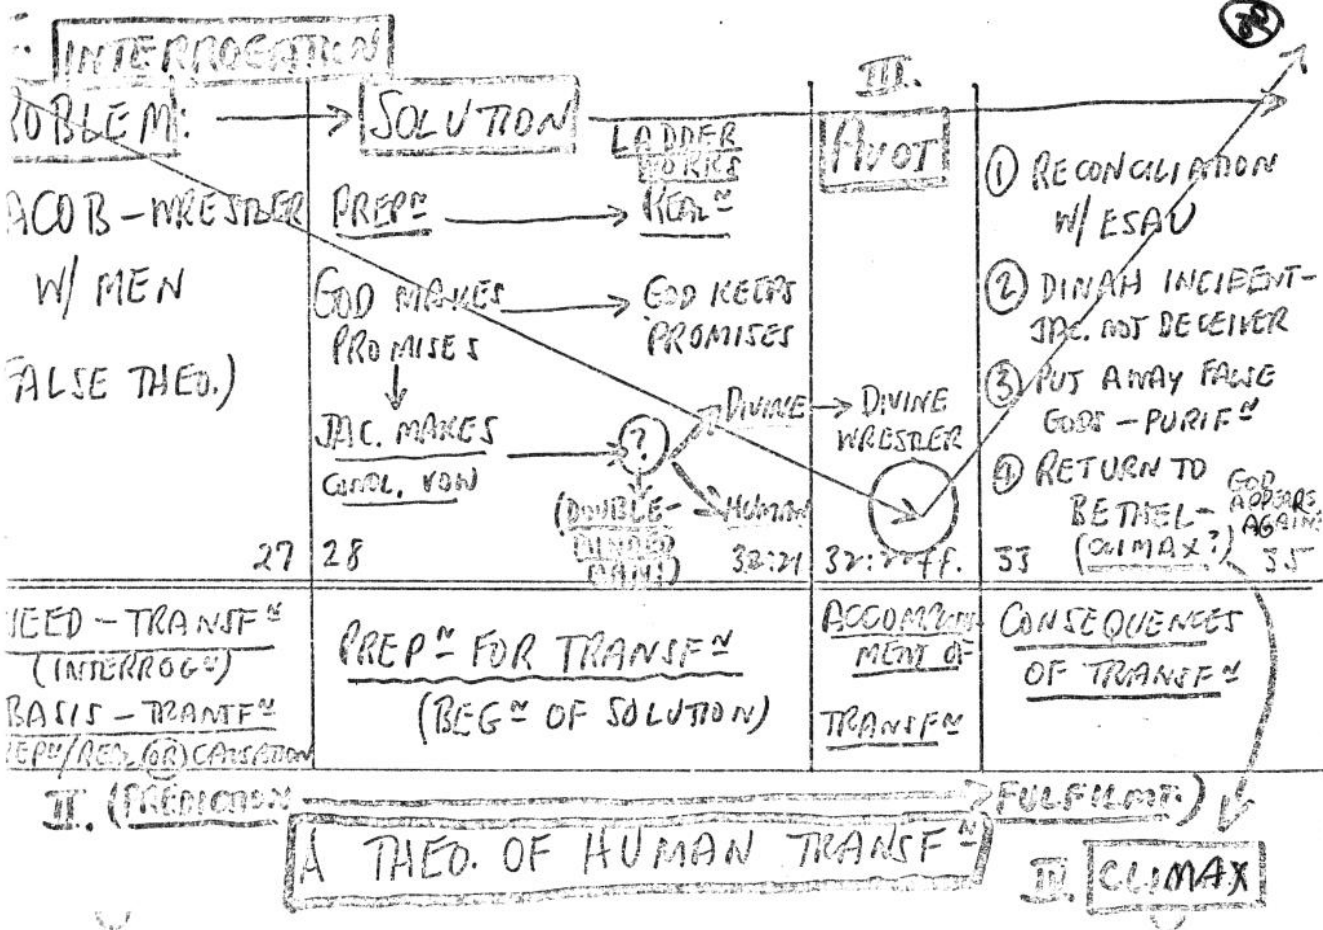 INTERROGATION
OBLEM:
SOLUTION
ACOB - WRESTLER
W/ MEN
FALSE THEO.)
27
PREPⁿ
LADDER
WORKS
REALⁿ
GOD MAKES
PROMISES
GOD KEEPS
PROMISES
JAC. MAKES
CONDL. VOW
?
DIVINE
HUMAN
(DOUBLE-
MINDED
MAN!)
28
32:21
III.
PIVOT
DIVINE
WRESTLER
32:22ff.
① RECONCILIATION
W/ ESAU
② DINAH INCIDENT-
JAC. NOT DECEIVER
③ PUT AWAY FALSE
GODS - PURIFⁿ
④ RETURN TO
BETHEL-
(CLIMAX?)
GOD
APPEARS
AGAIN:
33
35
NEED - TRANSFⁿ
(INTERROGⁿ)
BASIS - TRANSFⁿ
(OR) CAUSATION
PREPⁿ FOR TRANSFⁿ
(BEGⁿ OF SOLUTION)
ACCOMPLISH-
MENT OF
TRANSFⁿ
CONSEQUENCES
OF TRANSFⁿ
II. (PREDICTION
FULFILMT.)
A THEO. OF HUMAN TRANSFⁿ
IV. CLIMAX